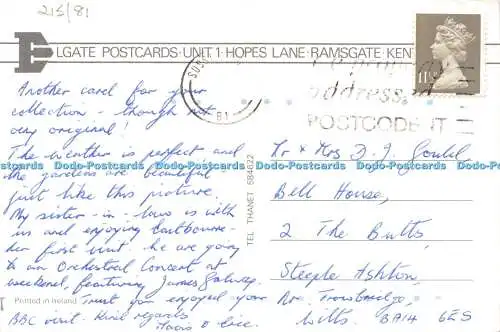 215/81
ELGATE POSTCARDS · UNIT 1 · HOPES LANE · RAMSGATE · KENT
11½P
81
address
POSTCODE IT
Another card for your
collection – though not
very original!
The weather is perfect and
the gardens are beautiful
just like this picture.
My sister-in-law is with
us and enjoying Eastbourne –
her first visit. We are going
to an Orchestral Concert at
weekend, featuring James Galway.
Trust you enjoyed your
BBC visit. Kind regards
Printed in Ireland
TEL THANET 584622
Mr & Mrs D. J. Gould
Bell House,
2 The Butts,
Steeple Ashton,
Nr. Trowbridge,
Wilts. BA14 6ES
Dodo-Postcards Dodo-Postcards Dodo-Postcards Dodo-Postcards Dodo-Postcards Dodo-Postcards